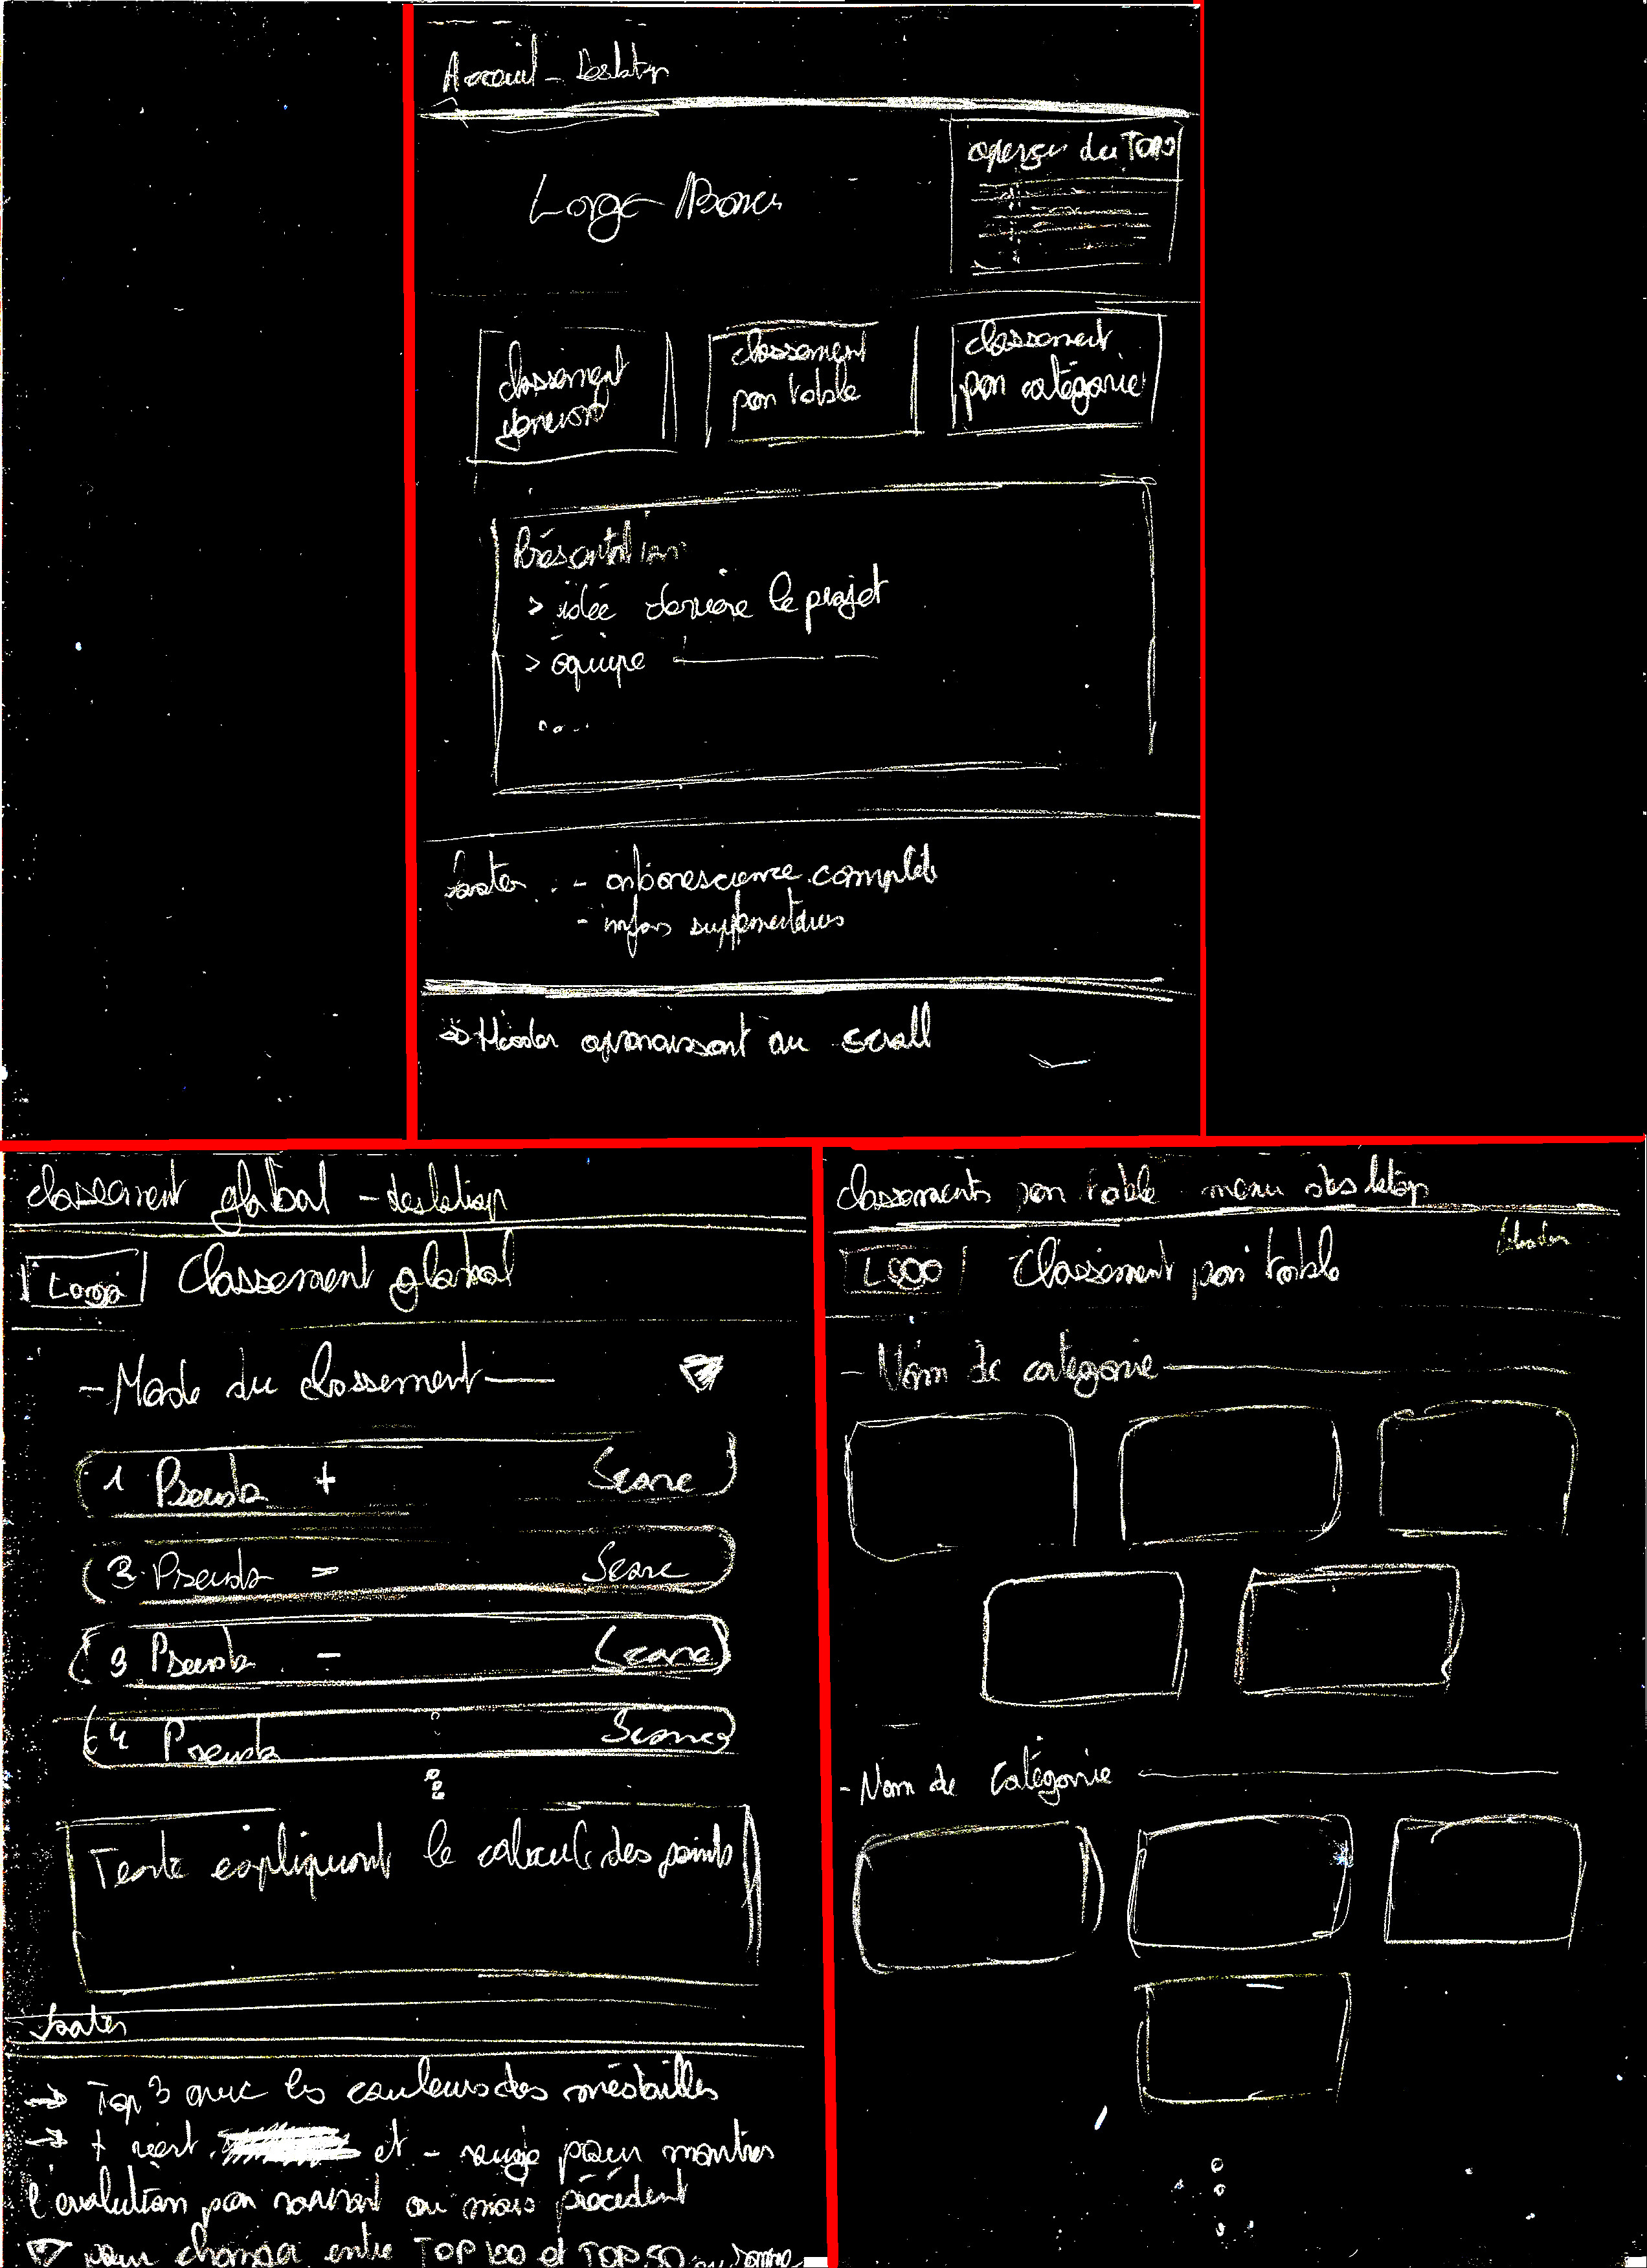 Accueil - Desktop
aperçu du TOP
classement
général
classement
par table
classement
par catégorie
Présentation
> idée derrière le projet
> équipe
....
footer : - arborescence complète
- infos supplémentaires
=> Header apparaissant au scroll
classement global - desktop
Logo Classement global
- Mode du classement -
1 Pseudo + Score
2 Pseudo = Score
3 Pseudo - Score
4 Pseudo Score
Texte expliquant le calcul des points
footer
-> Top 3 avec les couleurs des médailles
-> + vert et - rouge pour montrer
l'évolution par rapport au mois précédent
pour changer entre TOP 100 et TOP 50
classements par table menu desktop
LOGO Classement par table
- Nom de catégorie
- Nom de catégorie